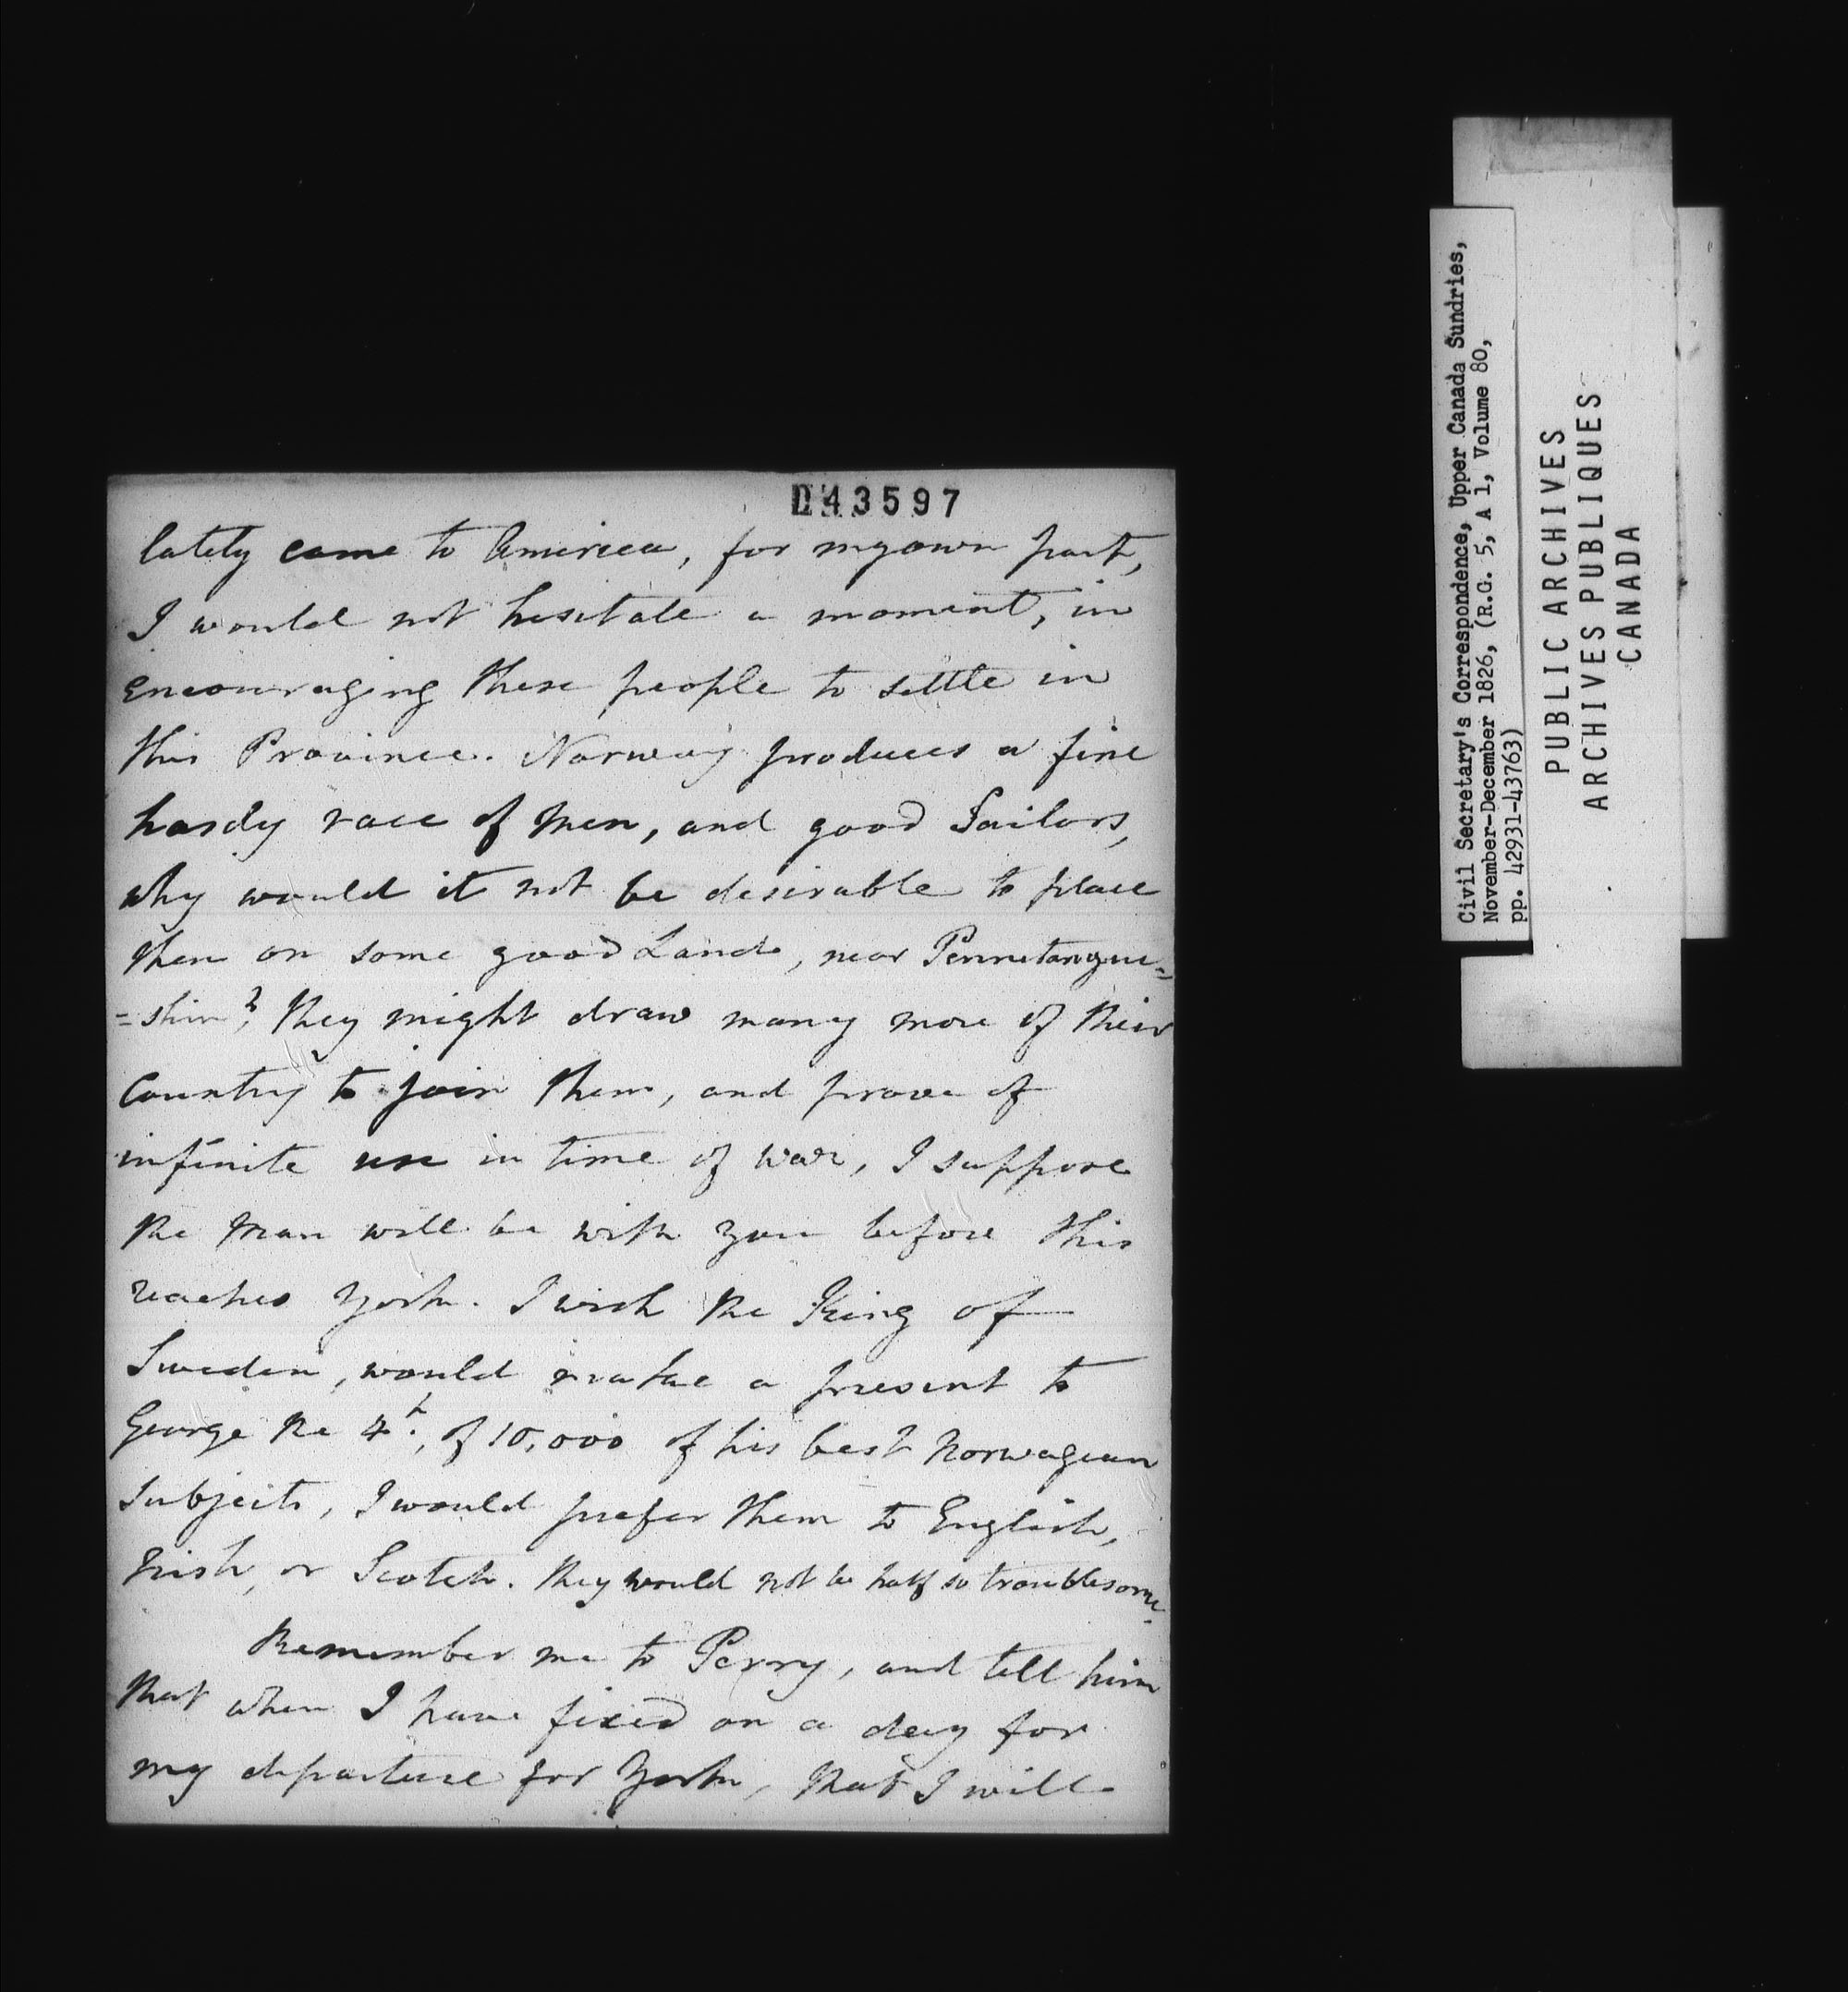 043597
lately came to America, for my own part,
I would not hesitate a moment, in
encouraging these people to settle in
this Province. Norway produces a fine
hardy race of Men, and good Sailors,
why would it not be desirable to place
them on some good Land, near Pennetangue=
=shin? they might draw many more of their
Country to join them, and prove of
infinite use in time of War, I suppose
the Man will be with you before this
reaches York. I wish the King of
Sweden, would make a present to
George the 4th, of 10,000 of his best Norwagean
Subjects, I would prefer them to English,
Irish, or Scotch. they would not be half so troublesome.
Remember me to Perry, and tell him
that when I have fixed on a day for
my departure for York, that I will
Civil Secretary's Correspondence, Upper Canada Sundries,
November-December 1826, (R.G. 5, A 1, Volume 80,
pp. 42931-43763)
PUBLIC ARCHIVES
ARCHIVES PUBLIQUES
CANADA